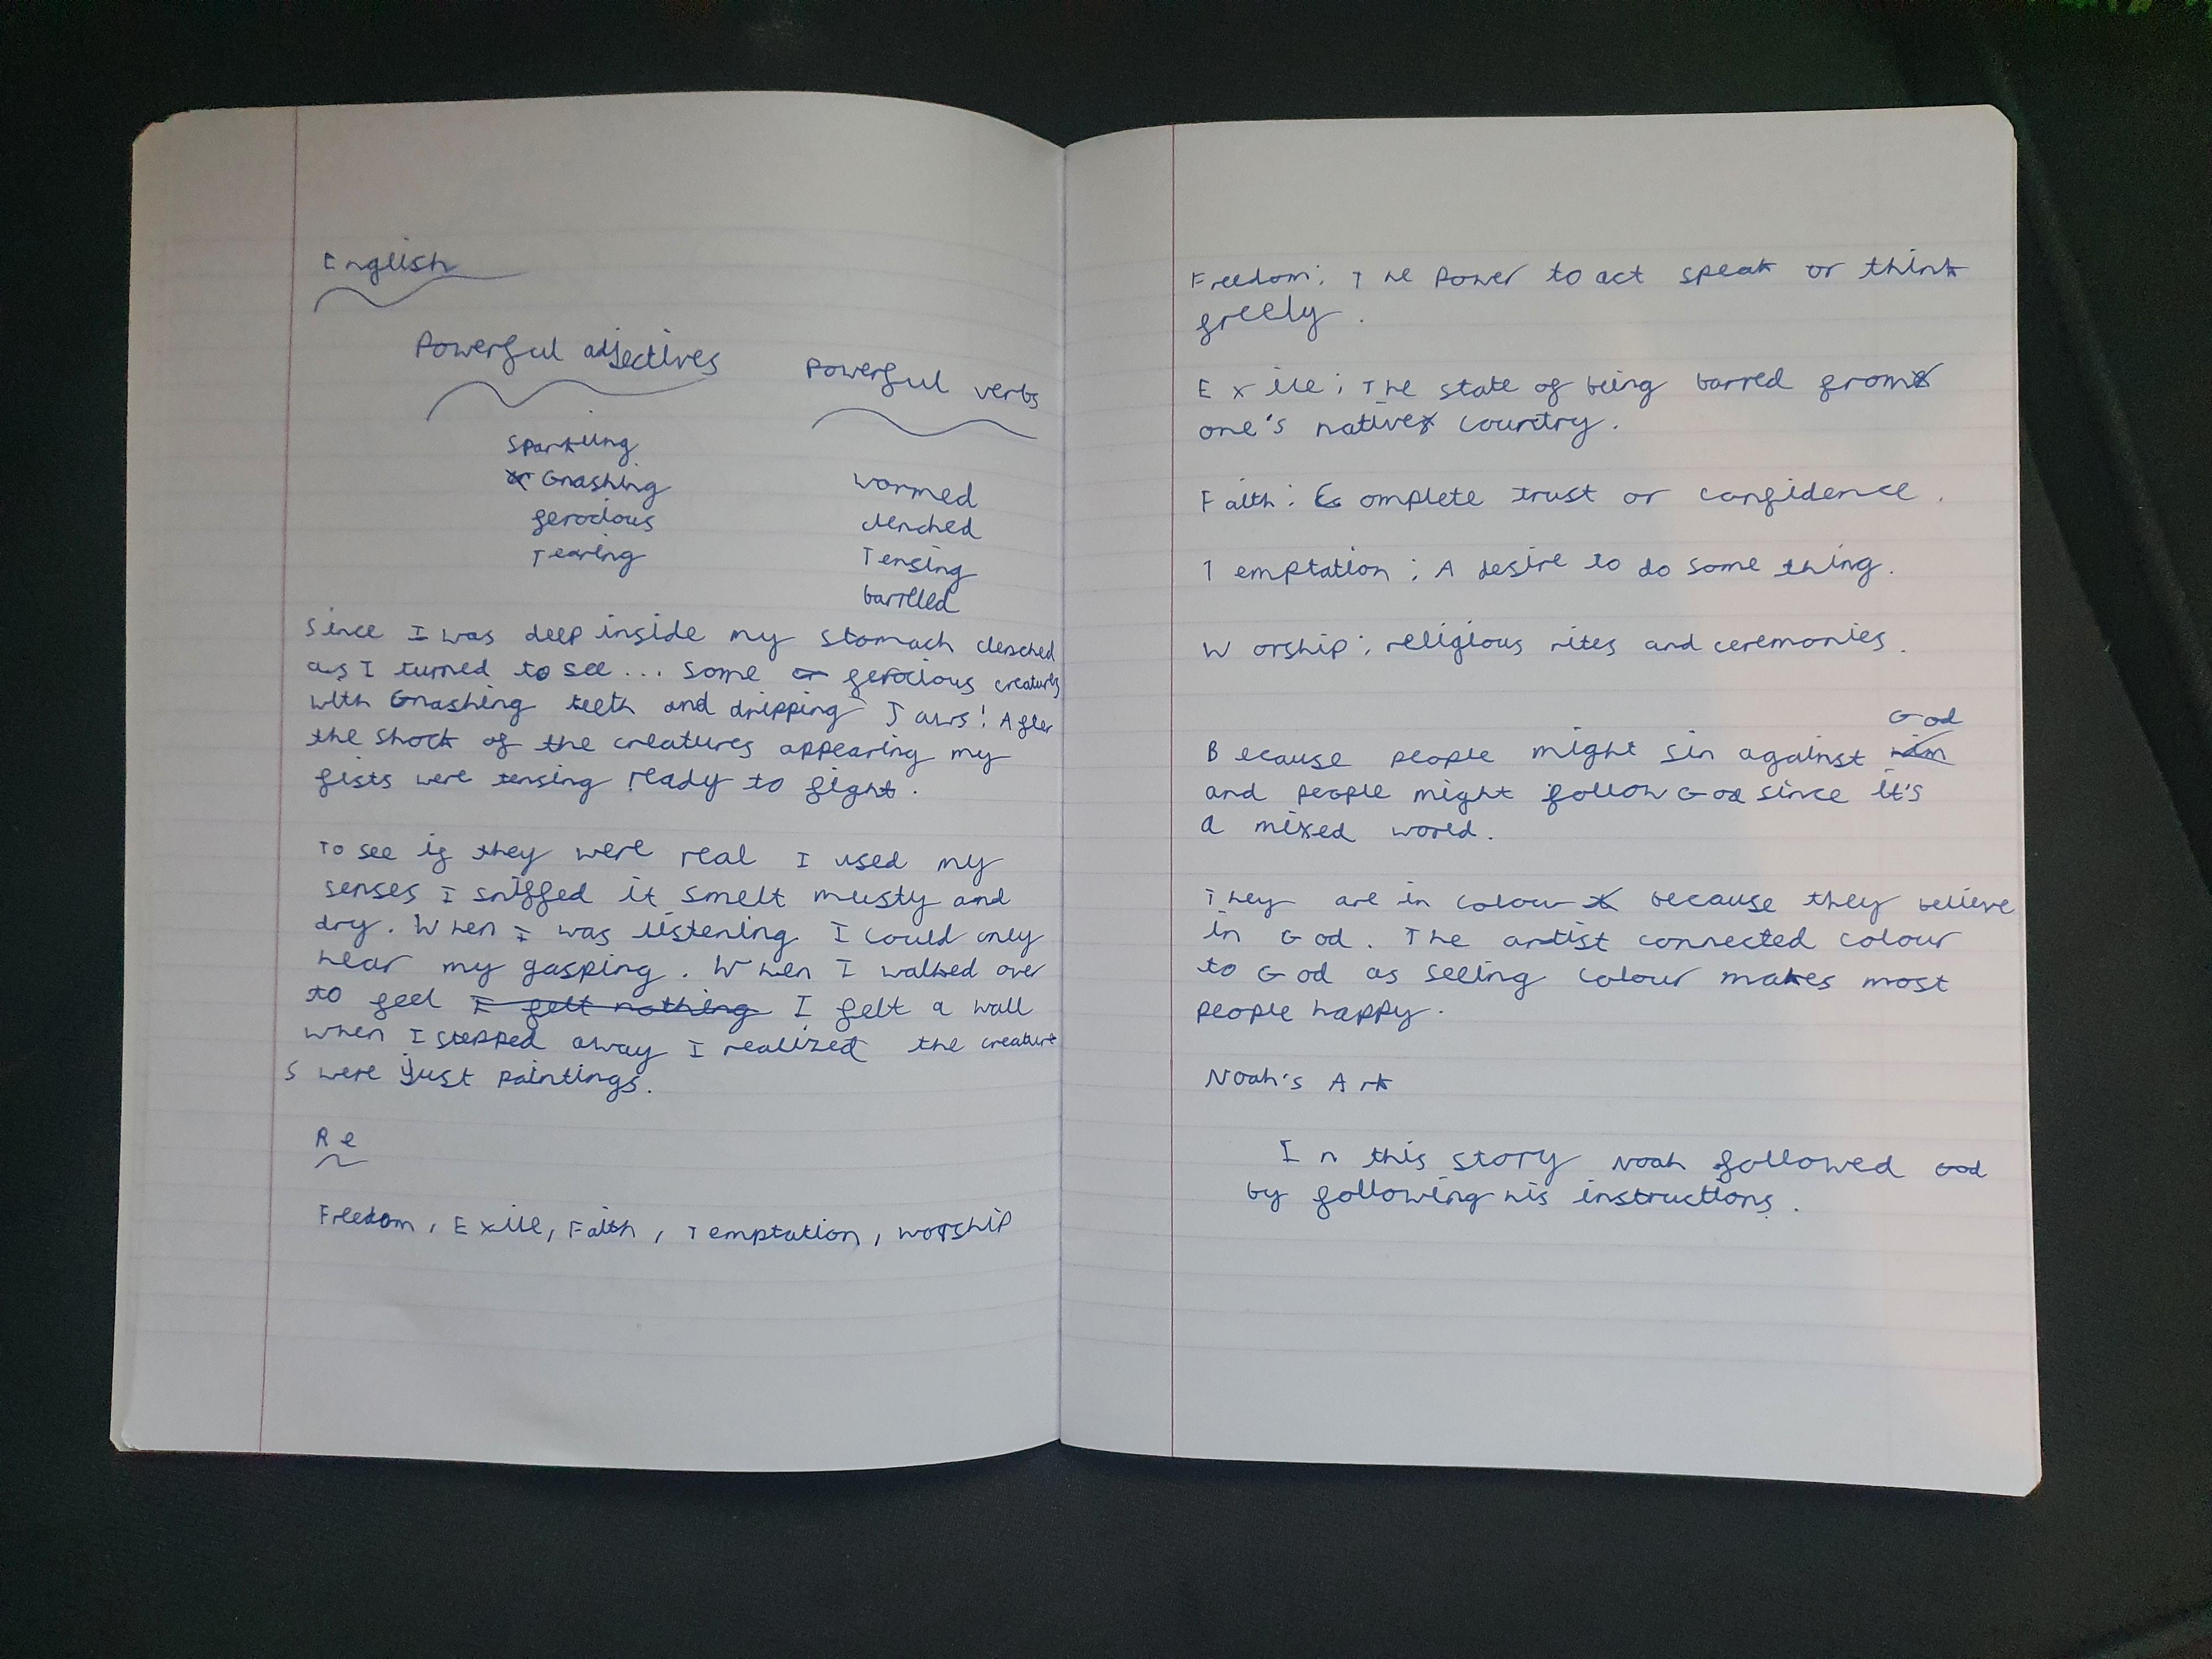 English
Powerful adjectives
Powerful verbs
Sparkling
Gnashing
ferocious
Tearing
wormed
clenched
Tensing
barrelled
Since I was deep inside my stomach clenched
as I turned to see... Some ferocious creatures
with Gnashing teeth and dripping Jaws! After
the shock of the creatures appearing my
fists were tensing ready to fight.
To see if they were real I used my
senses I sniffed it smelt musty and
dry. When I was listening I could only
hear my gasping. When I walked over
to feel I felt nothing I felt a wall
when I stepped away I realized the creature
s were just paintings.
Re
Freedom, Exile, Faith, Temptation, worship
Freedom: The Power to act speak or think
freely.
Exile: The state of being barred from
one's native country.
Faith: Complete trust or confidence.
Temptation: A desire to do some thing.
Worship: religious rites and ceremonies.
God
Because people might sin against him
and people might follow God since it's
a mixed world.
They are in colour because they believe
in God. The artist connected colour
to God as seeing colour makes most
people happy.
Noah's Ark
In this story Noah followed God
by following his instructions.